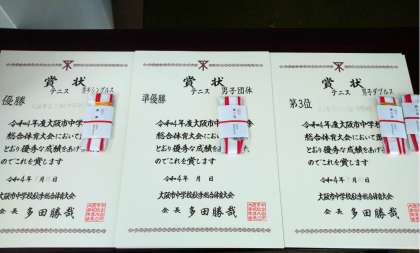 賞状
テニス 男子シングルス
優勝
令和4年度大阪市中学
総合体育大会において
とおり優秀な成績をあげ
のでこれを賞します
令和4年 月 日
大阪市中学校総合体育大会
会長 多田勝哉
賞状
テニス 男子団体
準優勝
令和4年度大阪市中学
総合体育大会において
とおり優秀な成績を
のでこれを賞します
令和4年 月 日
大阪市中学校総合体育大会
会長 多田勝哉
賞状
テニス 男子ダブルス
第3位
令和4年度大阪市中学
総合体育大会において
とおり優秀な成績をあげ
のでこれを賞します
令和4年 月 日
大阪市中学校総合体育大会
会長 多田勝哉